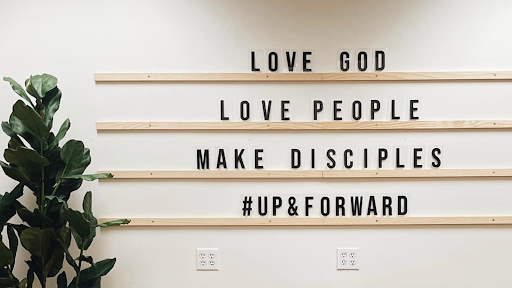 LOVE GOD
LOVE PEOPLE
MAKE DISCIPLES
#UP&FORWARD